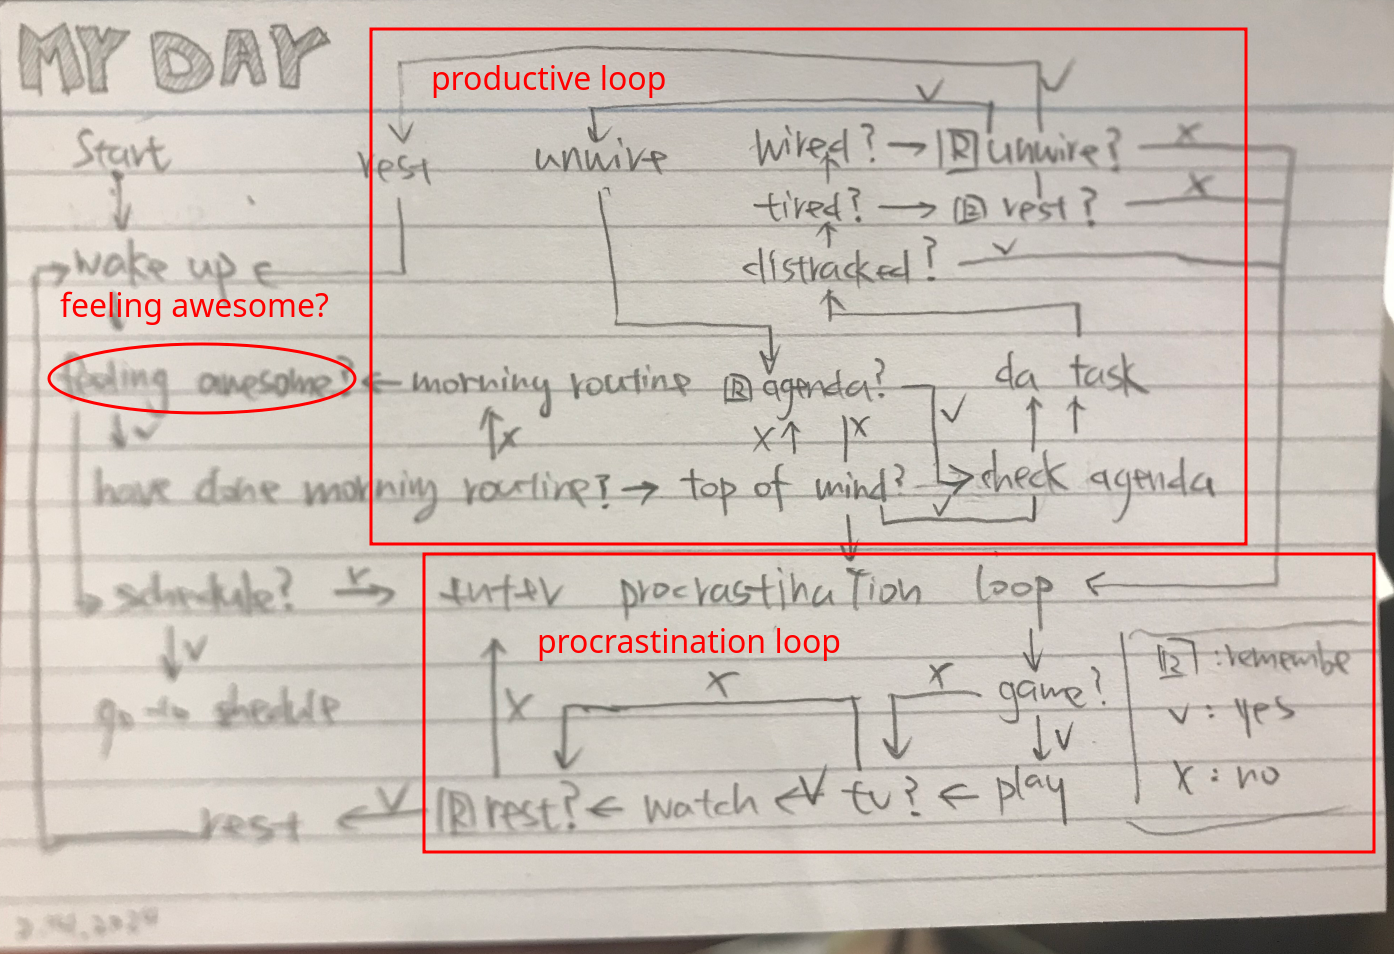 MY DAY
productive loop
Start
rest
unwire
wired? → R unwire? x
tired? → R rest? x
wake up
distracked? v
feeling awesome?
feeling awesome? ← morning routine
R agenda? v
da task
v
x
x
x
have done morning routine? → top of mind? v
check agenda
schedule? v → enter procrastination loop
procrastination loop
v
x
x
x
game?
R : remembe
go to shedule
v
v : yes
rest ← v R rest? ← watch ← v tv? ← play
x : no